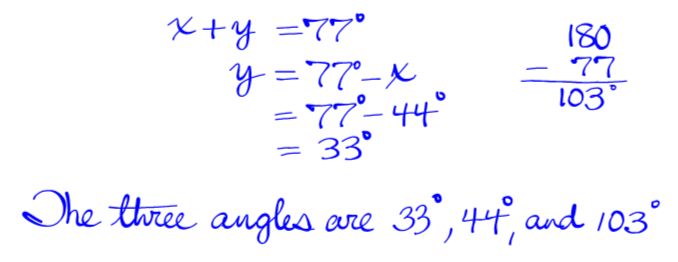 x + y = 77°
y = 77° - x
= 77° - 44°
= 33°
180
- 77
103°
The three angles are 33°, 44°, and 103°